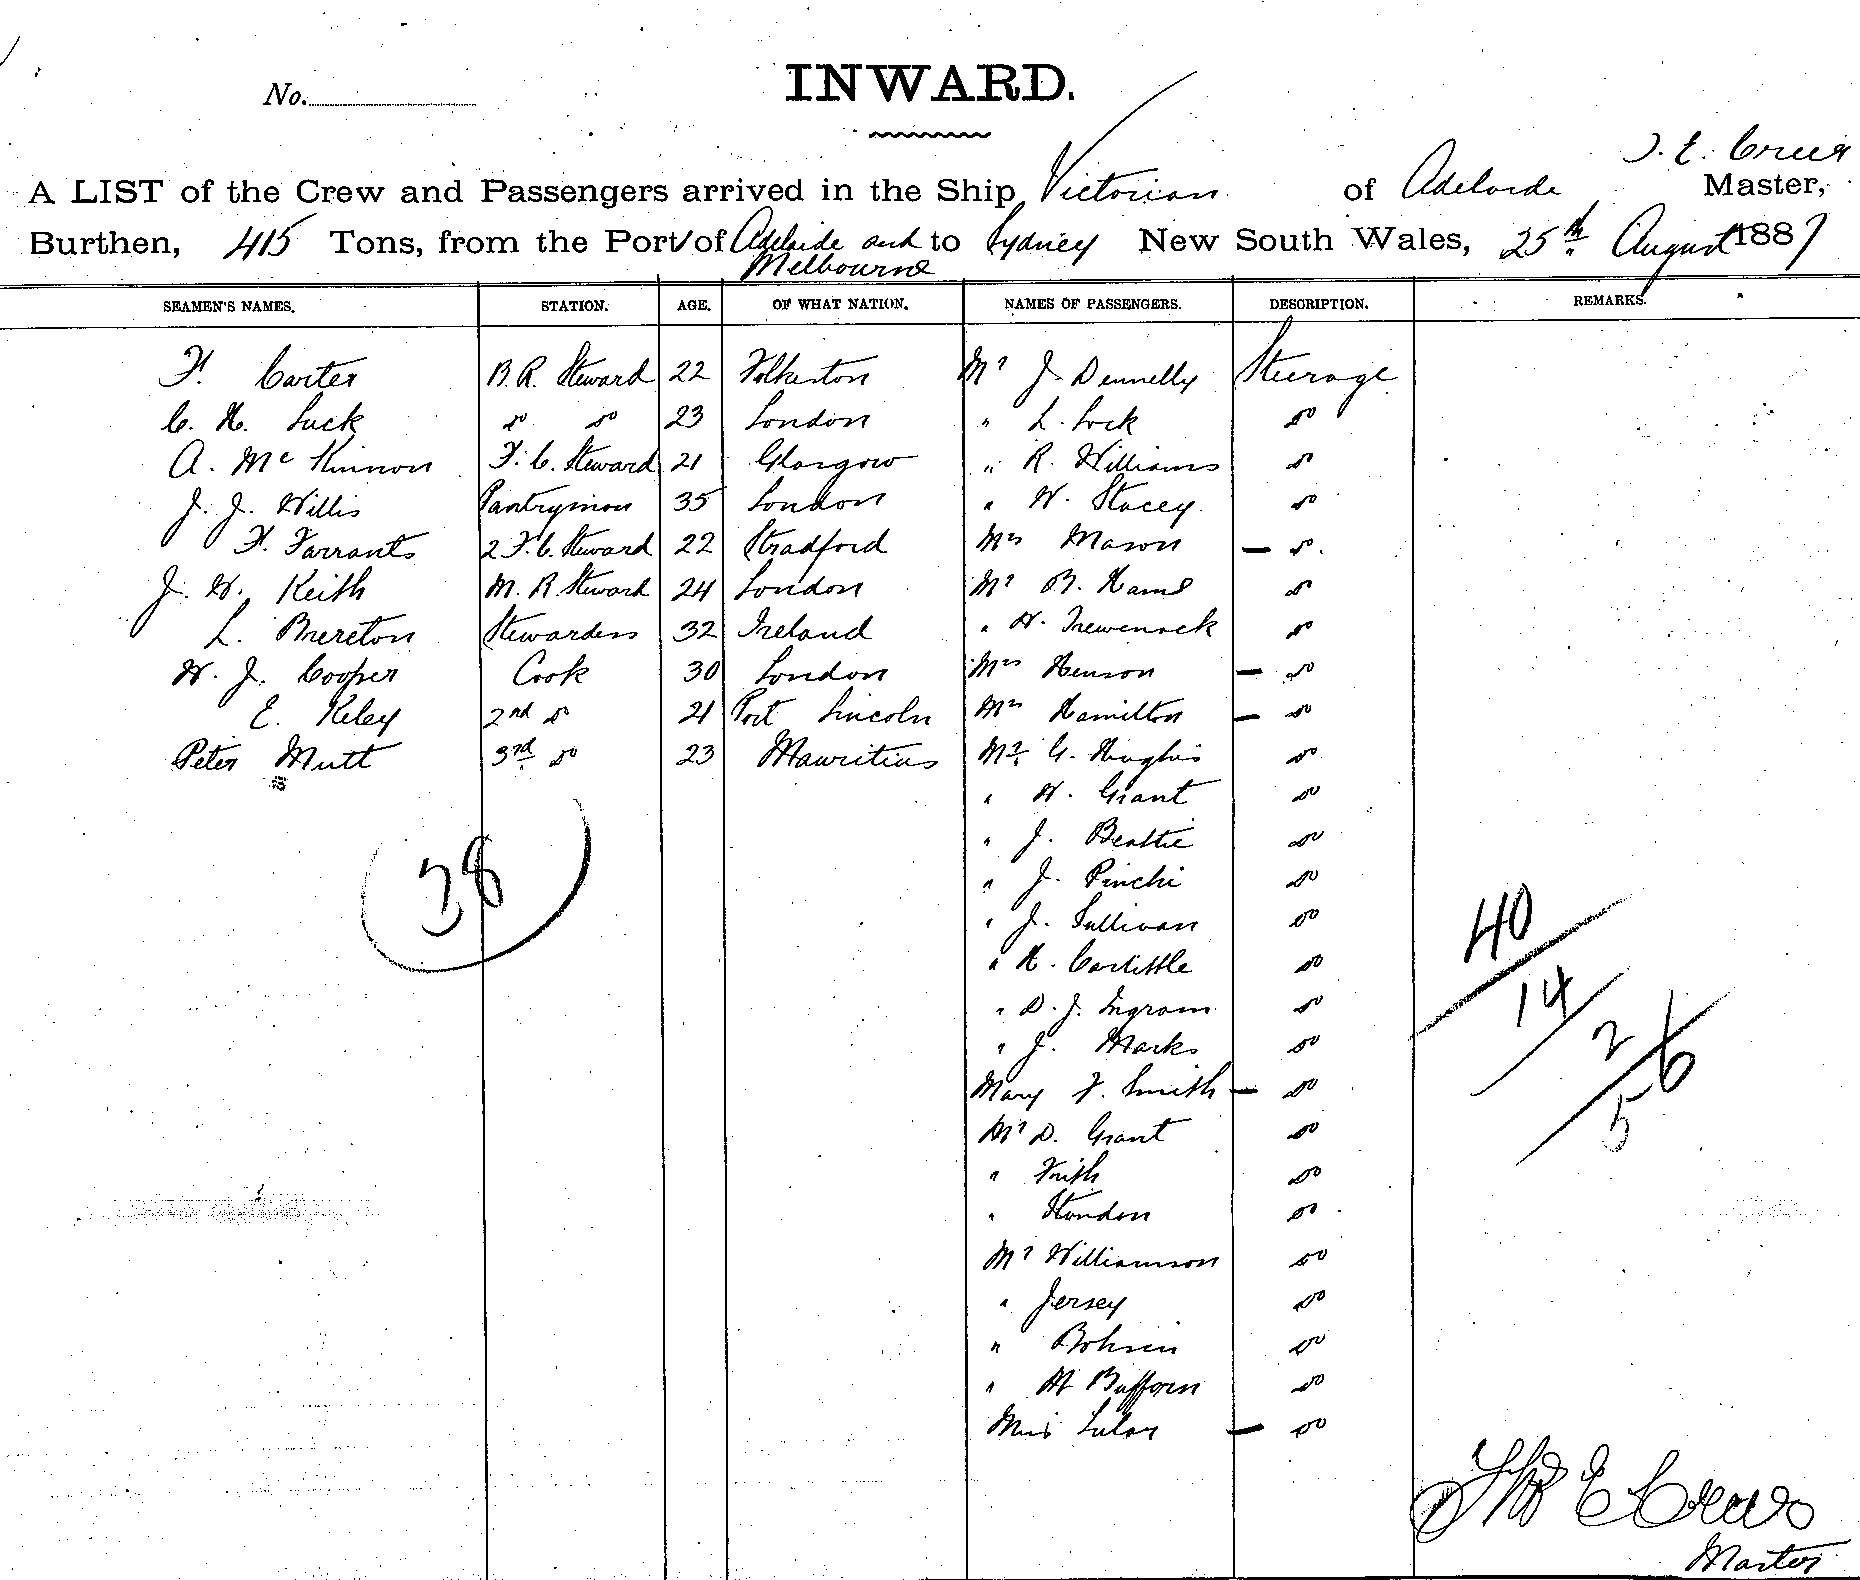 No.
INWARD.
T. E. Creer
A LIST of the Crew and Passengers arrived in the Ship Victorian of Adelaide Master,
Burthen, 415 Tons, from the Port of Adelaide and to Sydney New South Wales, 25th August 1887
Melbourne
SEAMEN'S NAMES. STATION. AGE. OF WHAT NATION. NAMES OF PASSENGERS. DESCRIPTION. REMARKS.
F. Carter B.R. Steward 22 Folkeston Mr J. Dennelly Steerage
C. H. Luck do do 23 London " L. Lock do
A. McKinnon F.C. Steward 21 Glasgow " R. Williams do
J. J. Willis Pantryman 35 London " W. Stacey do
F. Farrants 2 F.C. Steward 22 Stradford Mrs Mason — do
J. W. Keith M.R. Steward 24 London Mr B. Hame do
L. Brereton Stewardess 32 Ireland " W. Trewenack do
W. J. Cooper Cook 30 London Mrs Henson — do
E. Riley 2nd do 21 Port Lincoln Mrs Hamilton — do
Peter Mutt 3rd do 23 Mauritius Mr G. Hughes do
" W. Grant do
" J. Beattie do
38 " J. Pinchi do
40 " J. Sullivan do
" H. Carlistle do
14 " D. J. Ingram do
2 " J. Marks do
56 Mary F. Smith — do
Mr D. Grant do
" Frith do
" Hondon do
Mr Williamson do
" Jersey do
" Bohsen do
" Bufforn do
Miss — do
Thos E Creer
Master